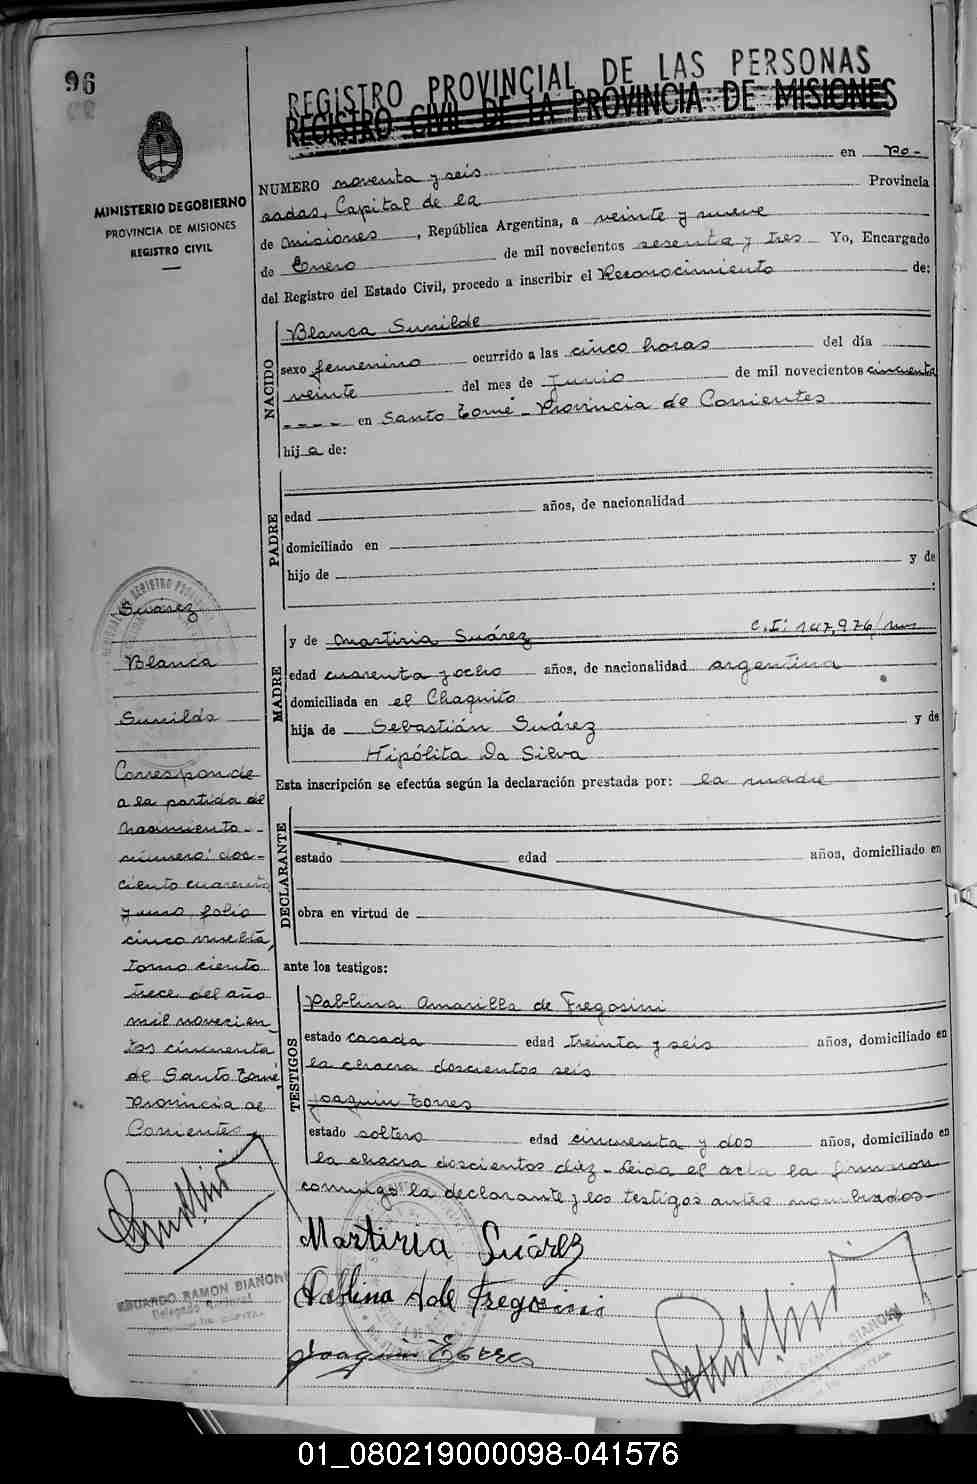 96
REGISTRO PROVINCIAL DE LAS PERSONAS
REGISTRO CIVIL DE LA PROVINCIA DE MISIONES
MINISTERIO DE GOBIERNO
PROVINCIA DE MISIONES
REGISTRO CIVIL
NUMERO noventa y seis en Po-
sadas, Capital de la Provincia
de Misiones, República Argentina, a veinte y nueve
de Enero de mil novecientos sesenta y tres Yo, Encargado
del Registro del Estado Civil, procedo a inscribir el Reconocimiento de:
NACIDO
Blanca Sunilde
sexo femenino ocurrido a las cinco horas del día
veinte del mes de Junio de mil novecientos cincuenta
---- en Santo Tomé - Provincia de Corrientes
hija de:
PADRE
edad años, de nacionalidad
domiciliado en
hijo de y de
:
MADRE
y de Martiria Suárez C.I: 147,976/mns
edad cuarenta y ocho años, de nacionalidad argentina
domiciliada en el Chaquito
hija de Sebastián Suárez y de
Hipólita Da Silva
Esta inscripción se efectúa según la declaración prestada por: la madre
DECLARANTE
estado edad años, domiciliado en
obra en virtud de
ante los testigos:
TESTIGOS
Pablina Amarilla de Fregosini
estado casada edad treinta y seis años, domiciliado en
la chacra doscientos seis
Joaquin Torres
estado soltero edad cincuenta y dos años, domiciliado en
la chacra doscientos diez - Leida el acta la firmaron
conmigo la declarante y los testigos antes nombrados-
Martiria Suárez
Pablina A de Fregosini
Joaquin Torres
Suárez
Blanca
Sunilda
Corresponde
a la partida de
Nacimiento--
número: dos-
ciento cuarenta
y uno folio
cinco vuelta,
tomo ciento
trece del año
mil novecien_
tos cincuenta
de Santo Tomé,
Provincia de
Corrientes
EDUARDO RAMON BIANCHI
Delegado
CAPITAL
BIANCHI
01_080219000098-041576